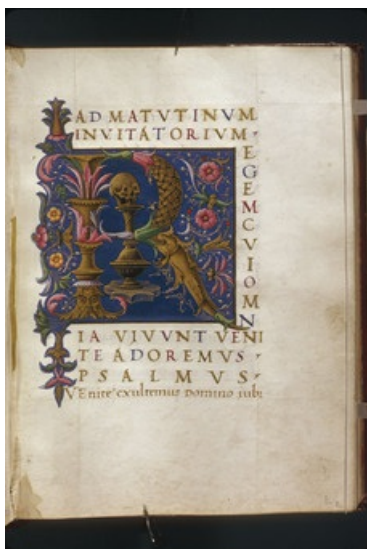 AD MATVTINVM
INVITATORIVM
R
E
G
E
M
C
V
I
O
M
N
IA VIVVNT VENI
TE ADOREMVS
PSALMVS
VEnite exultemus Domino iubi